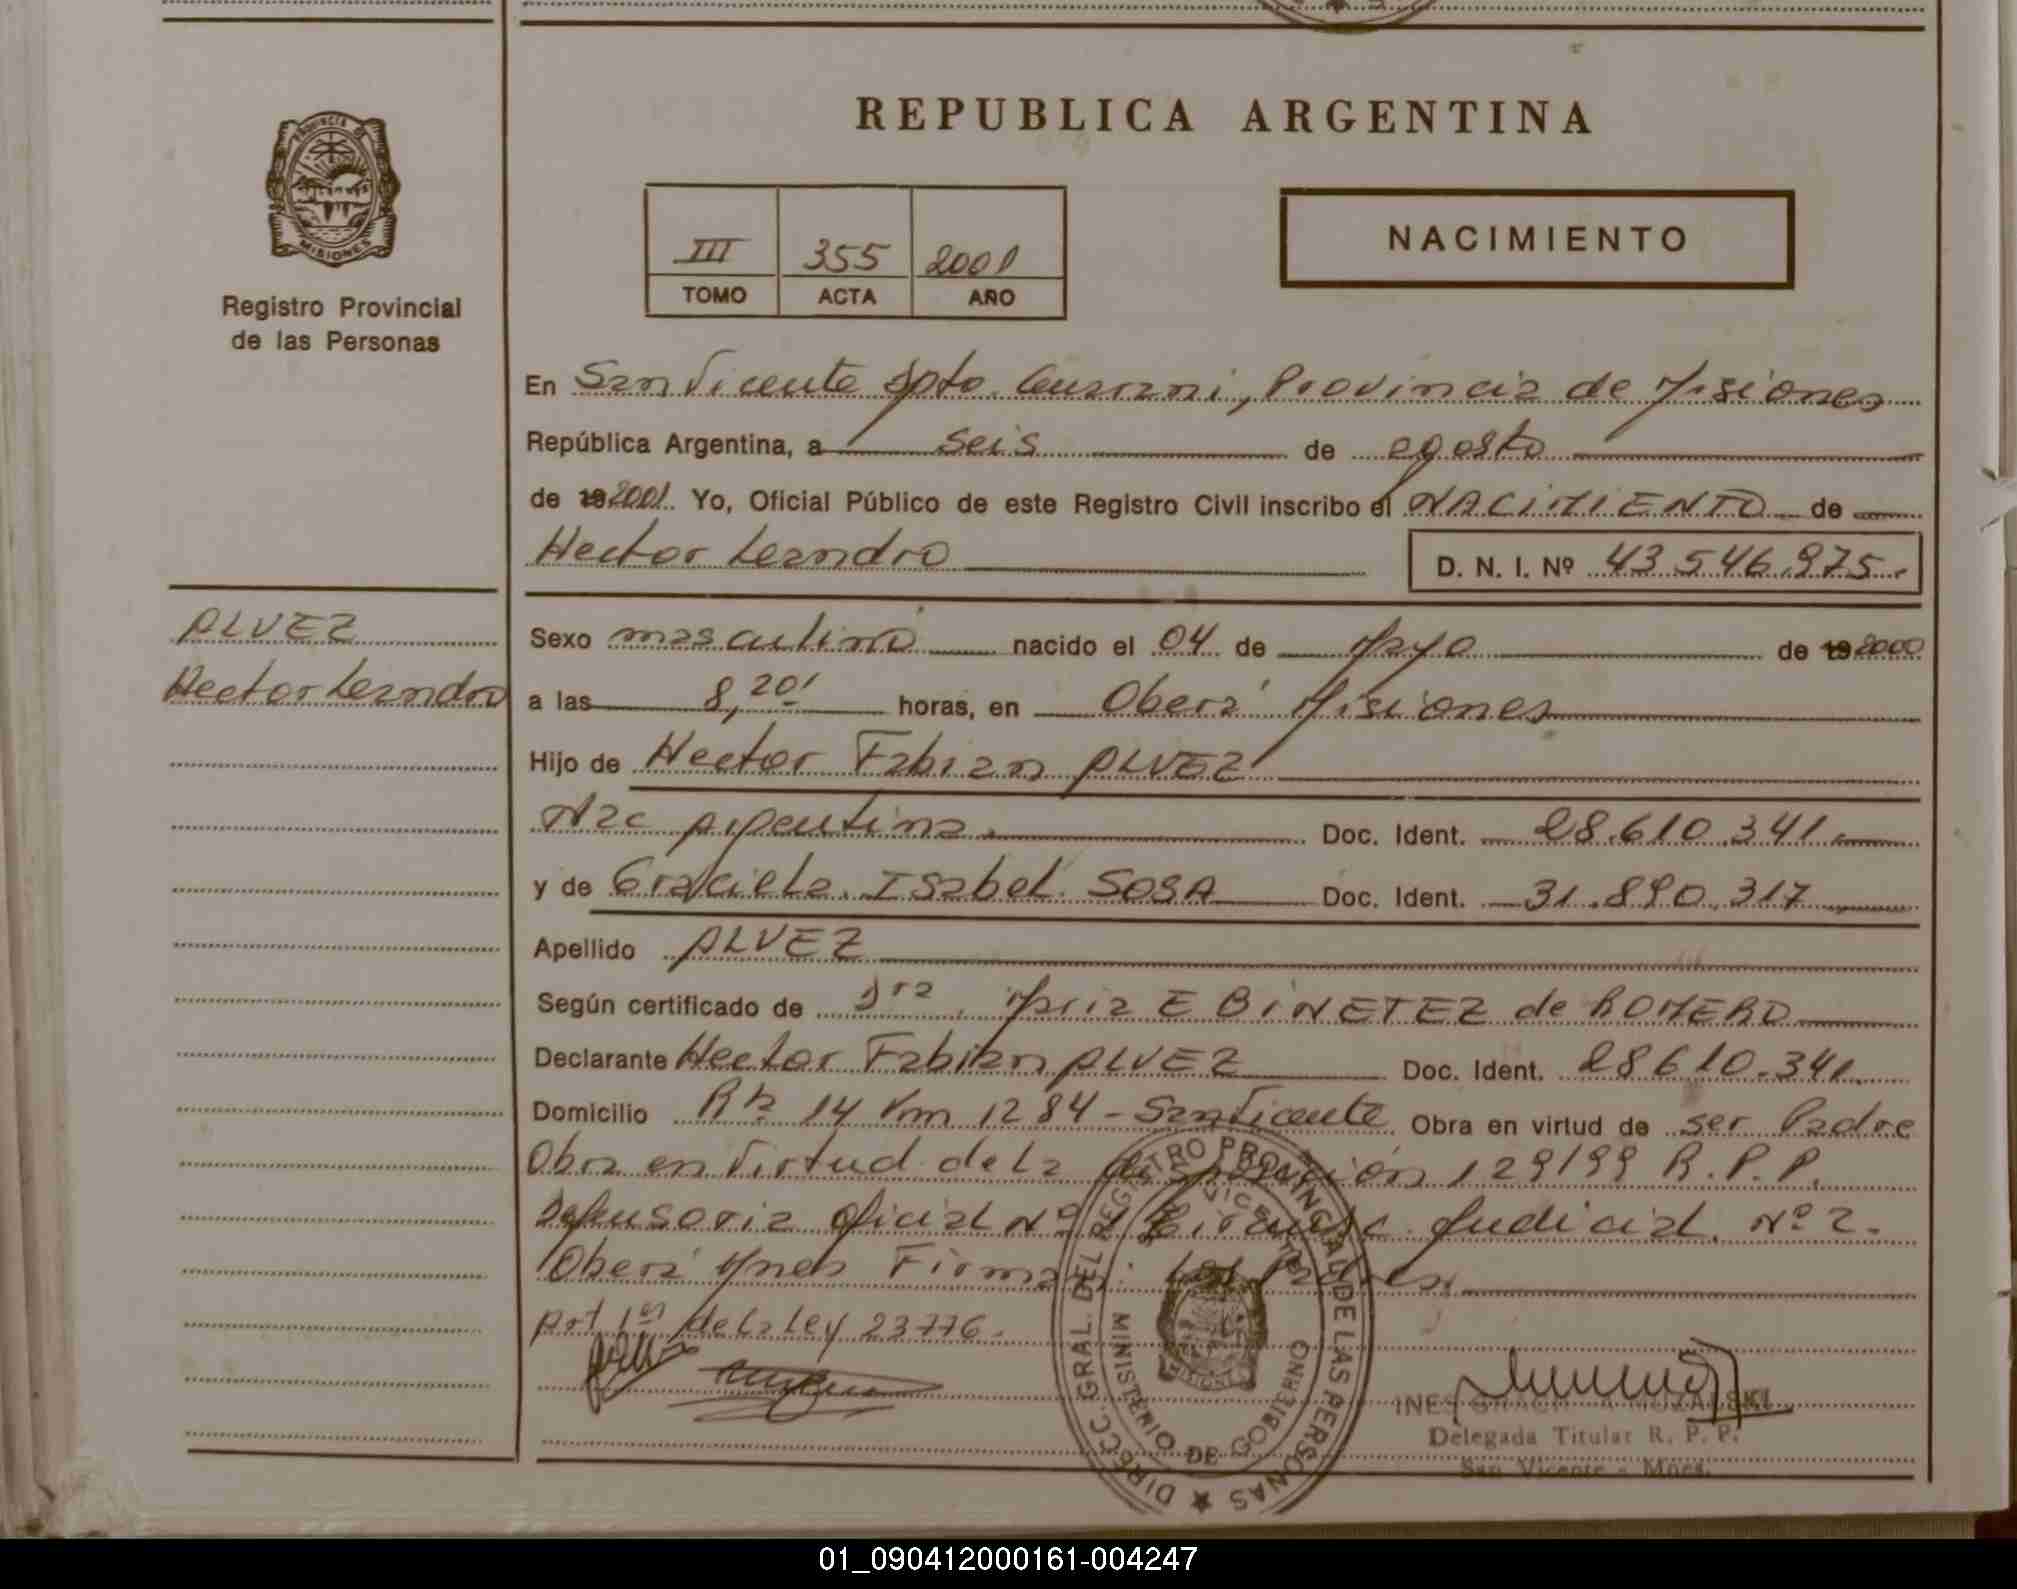 PROVINCIA DE
MISIONES
Registro Provincial
de las Personas
REPUBLICA ARGENTINA
III 355 2001
TOMO ACTA AÑO
NACIMIENTO
En San Vicente Dpto. Guarani, Provincia de Misiones
República Argentina, a seis de agosto
de 19 2001. Yo, Oficial Público de este Registro Civil inscribo el NACIMIENTO de
Hector Leandro D. N. I. Nº 43.546.975.
ALVEZ
Hector Leandro
Sexo masculino nacido el 04 de Mayo de 19 2000
a las 8,20' horas, en Oberá Misiones
Hijo de Hector Fabian ALVEZ
Nac Argentina. Doc. Ident. 28.610.341.
y de Graciela Isabel SOSA Doc. Ident. 31.890.317
Apellido ALVEZ
Según certificado de Dra. Maria E BINETEZ de ROMERO
Declarante Hector Fabian ALVEZ Doc. Ident. 28610.341.
Domicilio Rta 14 Km 1284 - San Vicente Obra en virtud de ser Padre
Obra en virtud de la disposición 129/99 R.P.P.
Defensoria Oficial Nº 1 Judicial. Nº 2.
Oberá Mnes Firman: Los Padres.
Art 1º de la Ley 23776.
DIRECC. GRAL. DEL REGISTRO PROVINCIAL DE LAS PERSONAS
SAN VICENTE
MINISTERIO DE GOBIERNO
MISIONES
INES MUZALSKI
Delegada Titular R. P. P.
San Vicente - Mnes.
01_090412000161-004247